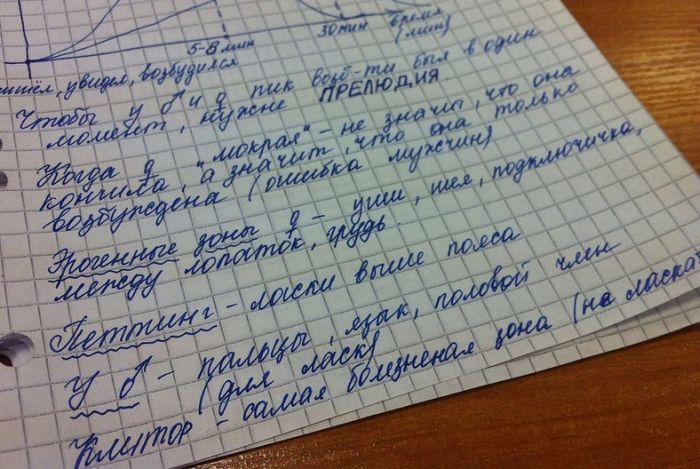 5-8 мин
30 мин
время
(мин)
увидел, возбудился
Чтобы у ♂ и ♀ пик возб-ти был в один
момент, нужне ПРЕЛЮДИЯ
Когда ♀ "мокрая" - не значит, что она
кончила, а значит, что она только
возбуждена (ошибка мужчин)
Эрогенные зоны ♀ - уши, шея, подключичка,
между лопаток, грудь.
Петтинг - ласки выше пояса
У ♂ - пальцы, язык, половой член
(для ласк)
Клитор - самая болезненая зона (не ласкат